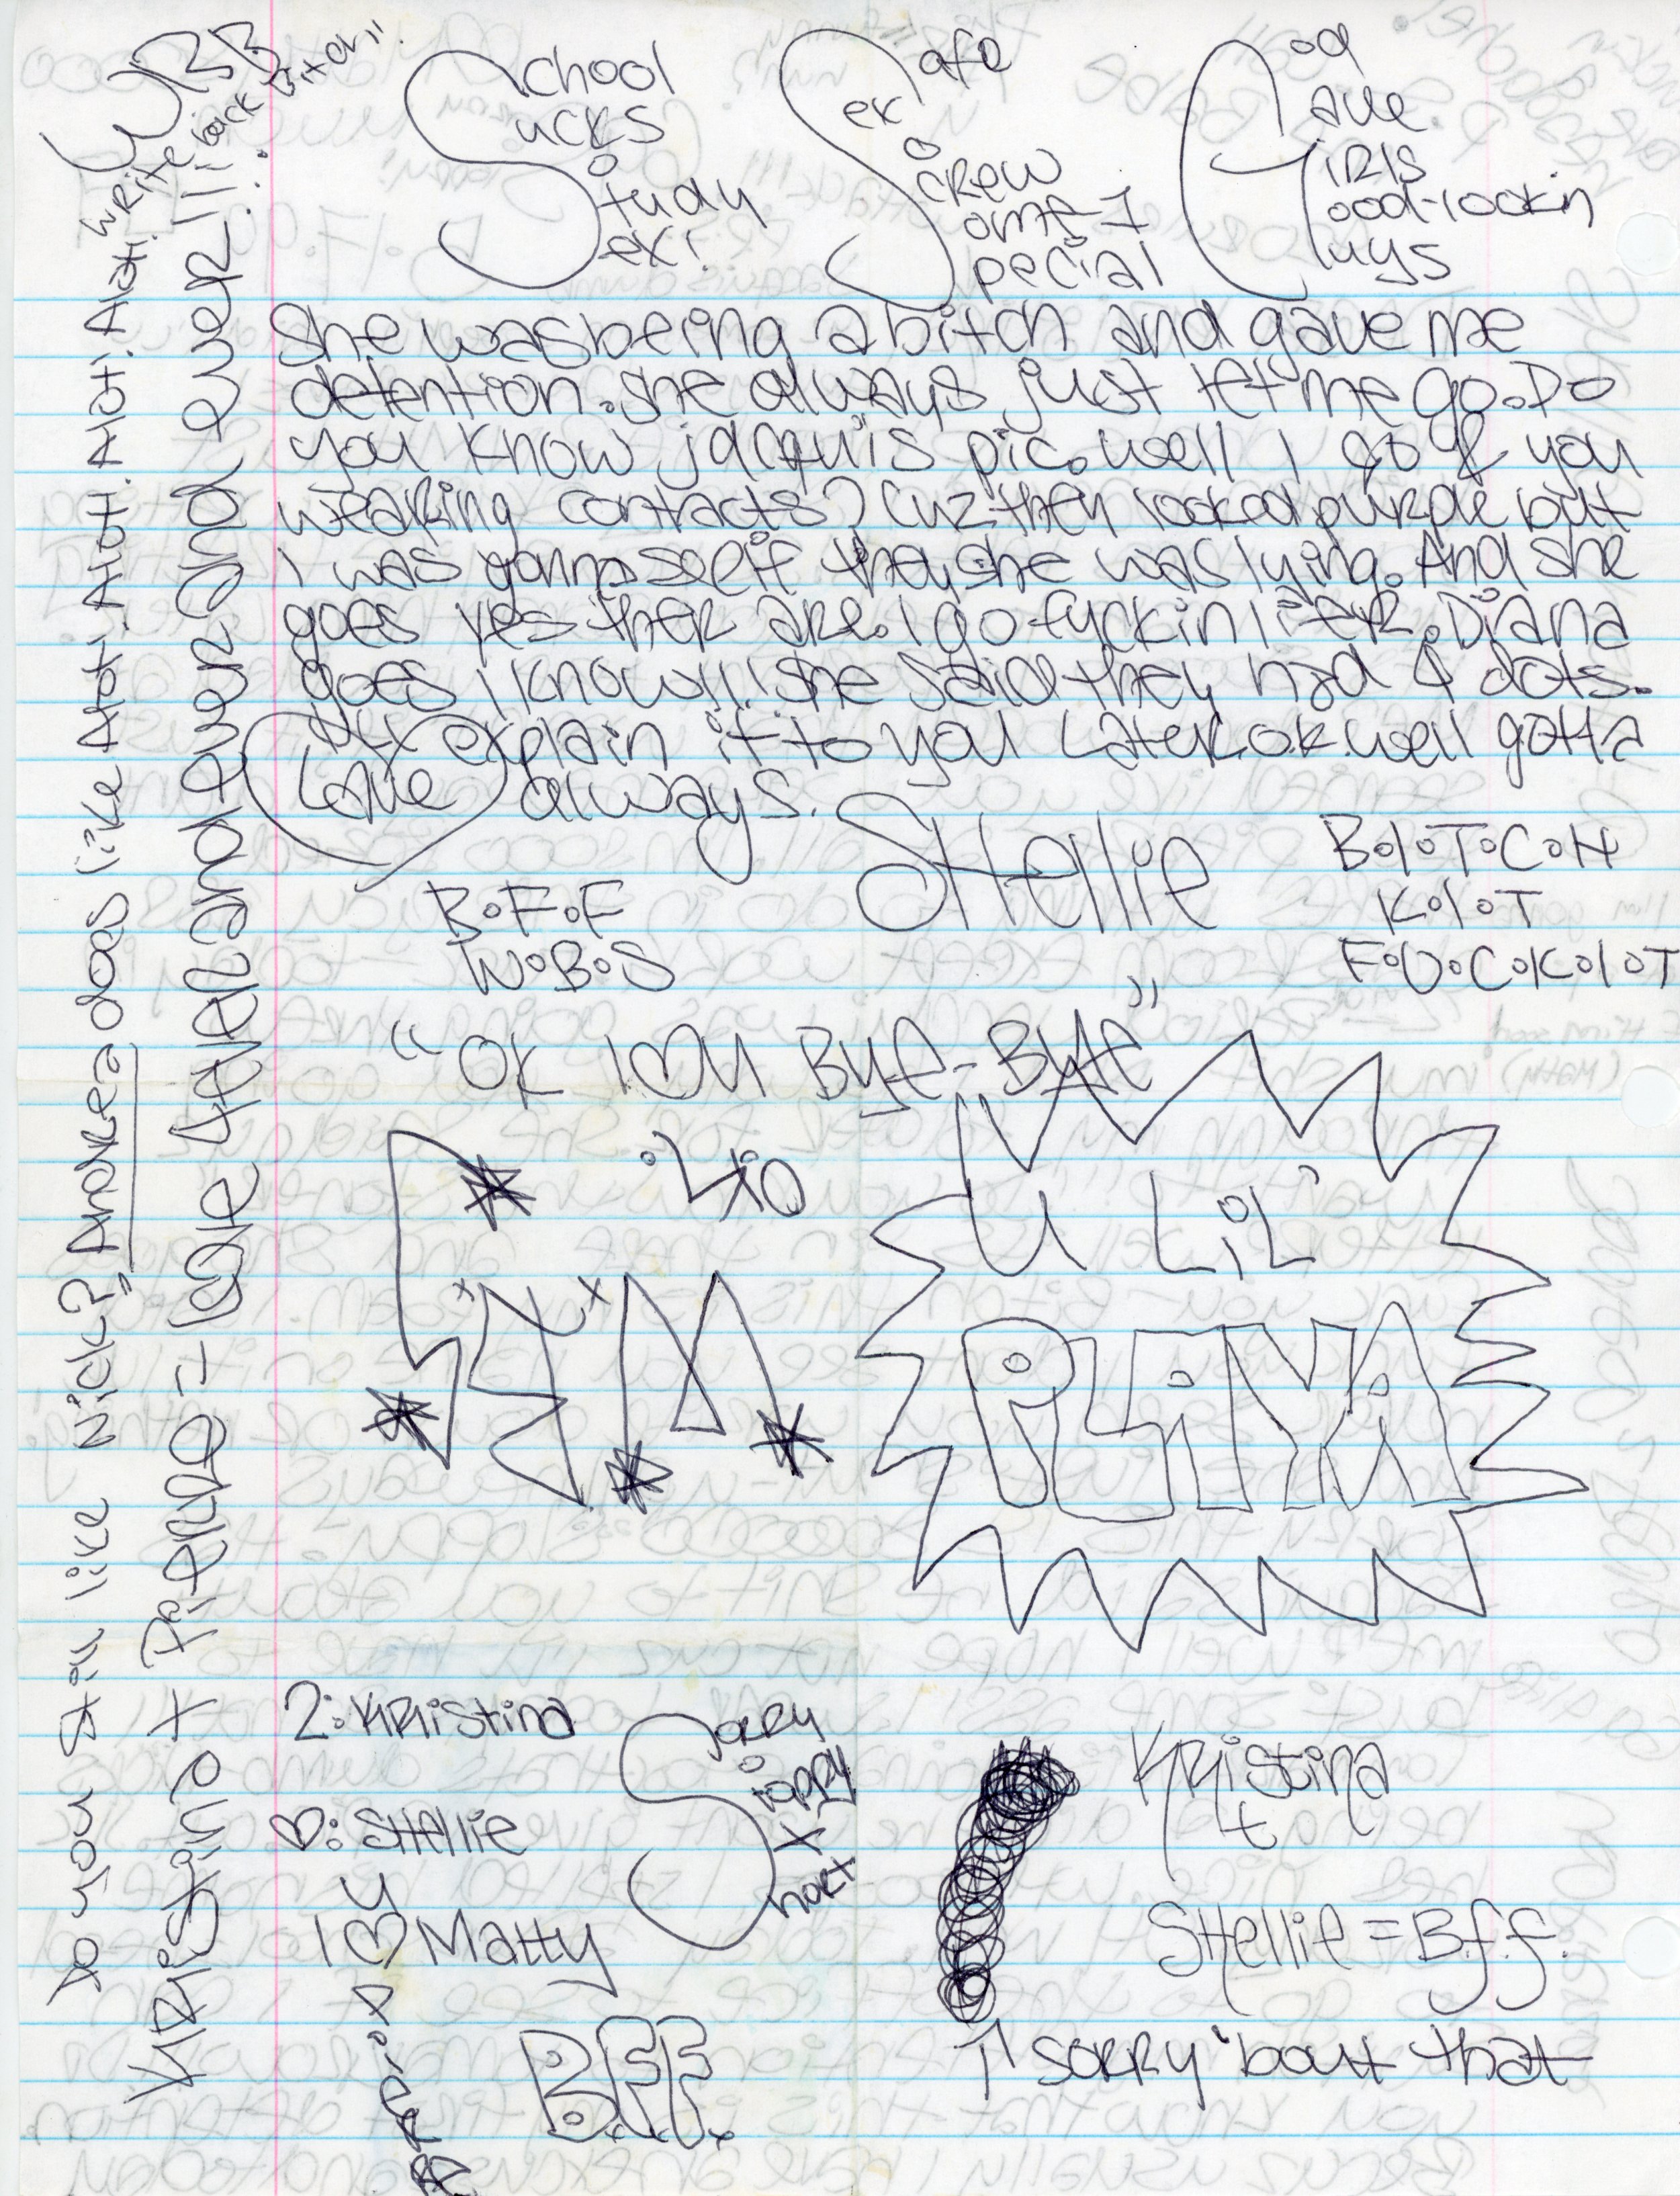 WBB
WRite back Bitch!!
School
Sucks
So
Study
Sex!
Safe
Sex
So
Screw
Some-1
Special
God
Gave
GiRls
Good-lookin
Guys
She was being a bitch and gave me
detention. she always just let me go. Do
you know jacqui's pic. well I go R you
weaRing contacts? Cuz they looked purple but
I was gonna see if she was lying. And she
goes yes they aRe. I go fuckin liaR. Diana
goes i know!! she said they had 4 dots.
explain it to you LateR. ok. well gotta
Love always.
SHellie
B.I.T.C.H
K.I.T
F.U.C.K.I.T
B.F.F
W.B.S
"OK I ♡ U Bye-Bye"
U LiL'
PLAYA
2: KRistina
♡: SHellie
SoRRy
So
Sloppy
+
ShoRt
I ♡ Matty
y
PieRRe
B.F.F.
KRistina
+
SHellie = B.f.f.
↑ SoRRy 'bout that
Do you still like Nick? AndRea does like Alot. Alot. Alot. Alot. Alot.
KRistina + PieRRe = Love 4eveR and eveR and eveR and eveR!!!